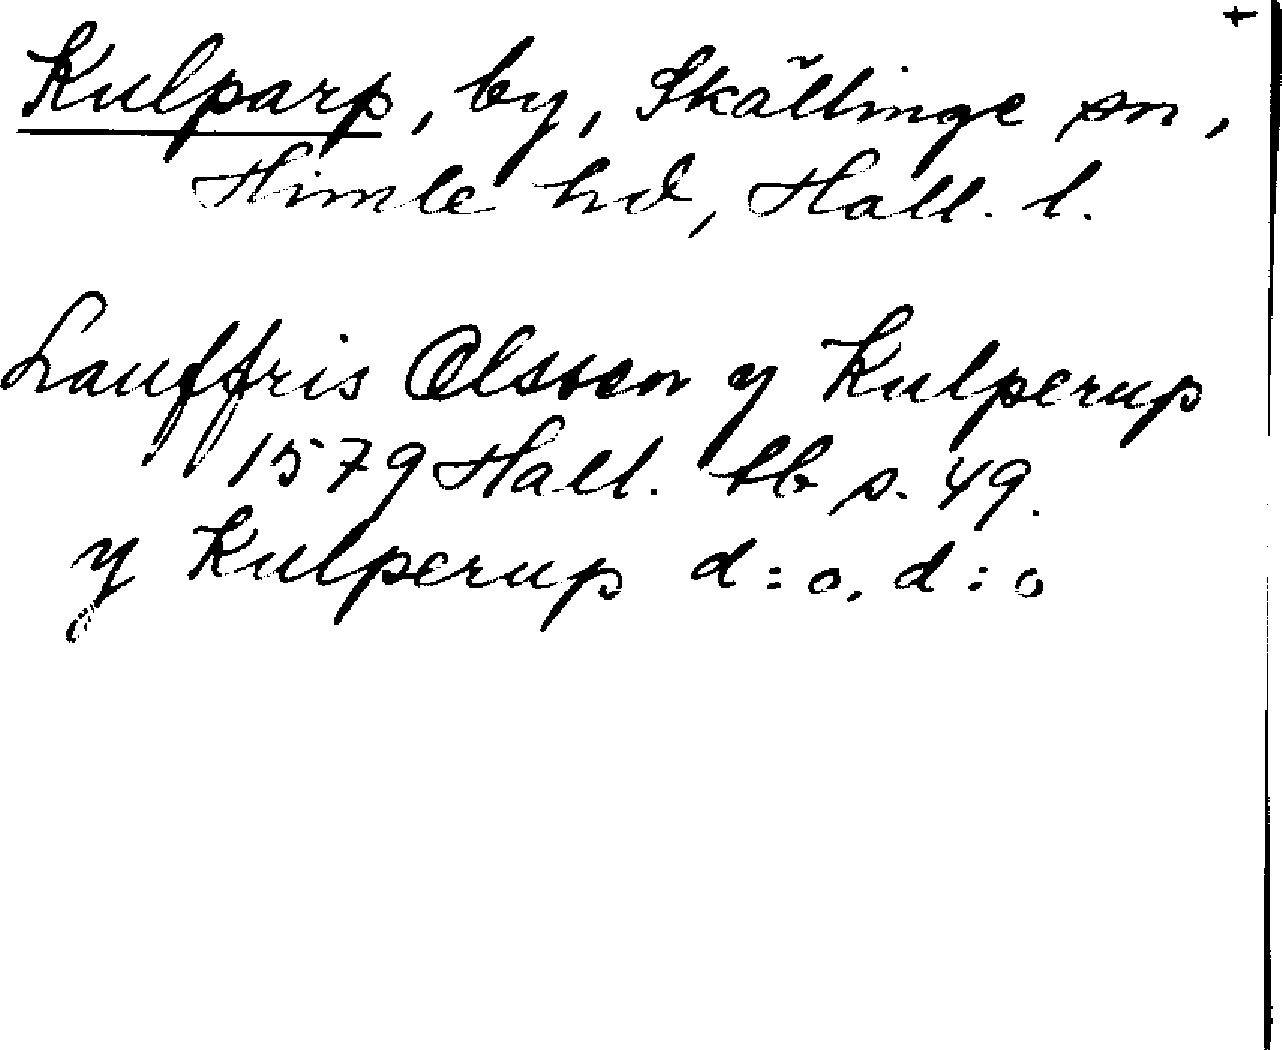 +
Kulparp, by, Skällinge sn,
Himle hd, Hall. l.
Lauffris Olssen y Kulperup
1579 Hall. lb s. 49.
y Kulperup d:o, d:o